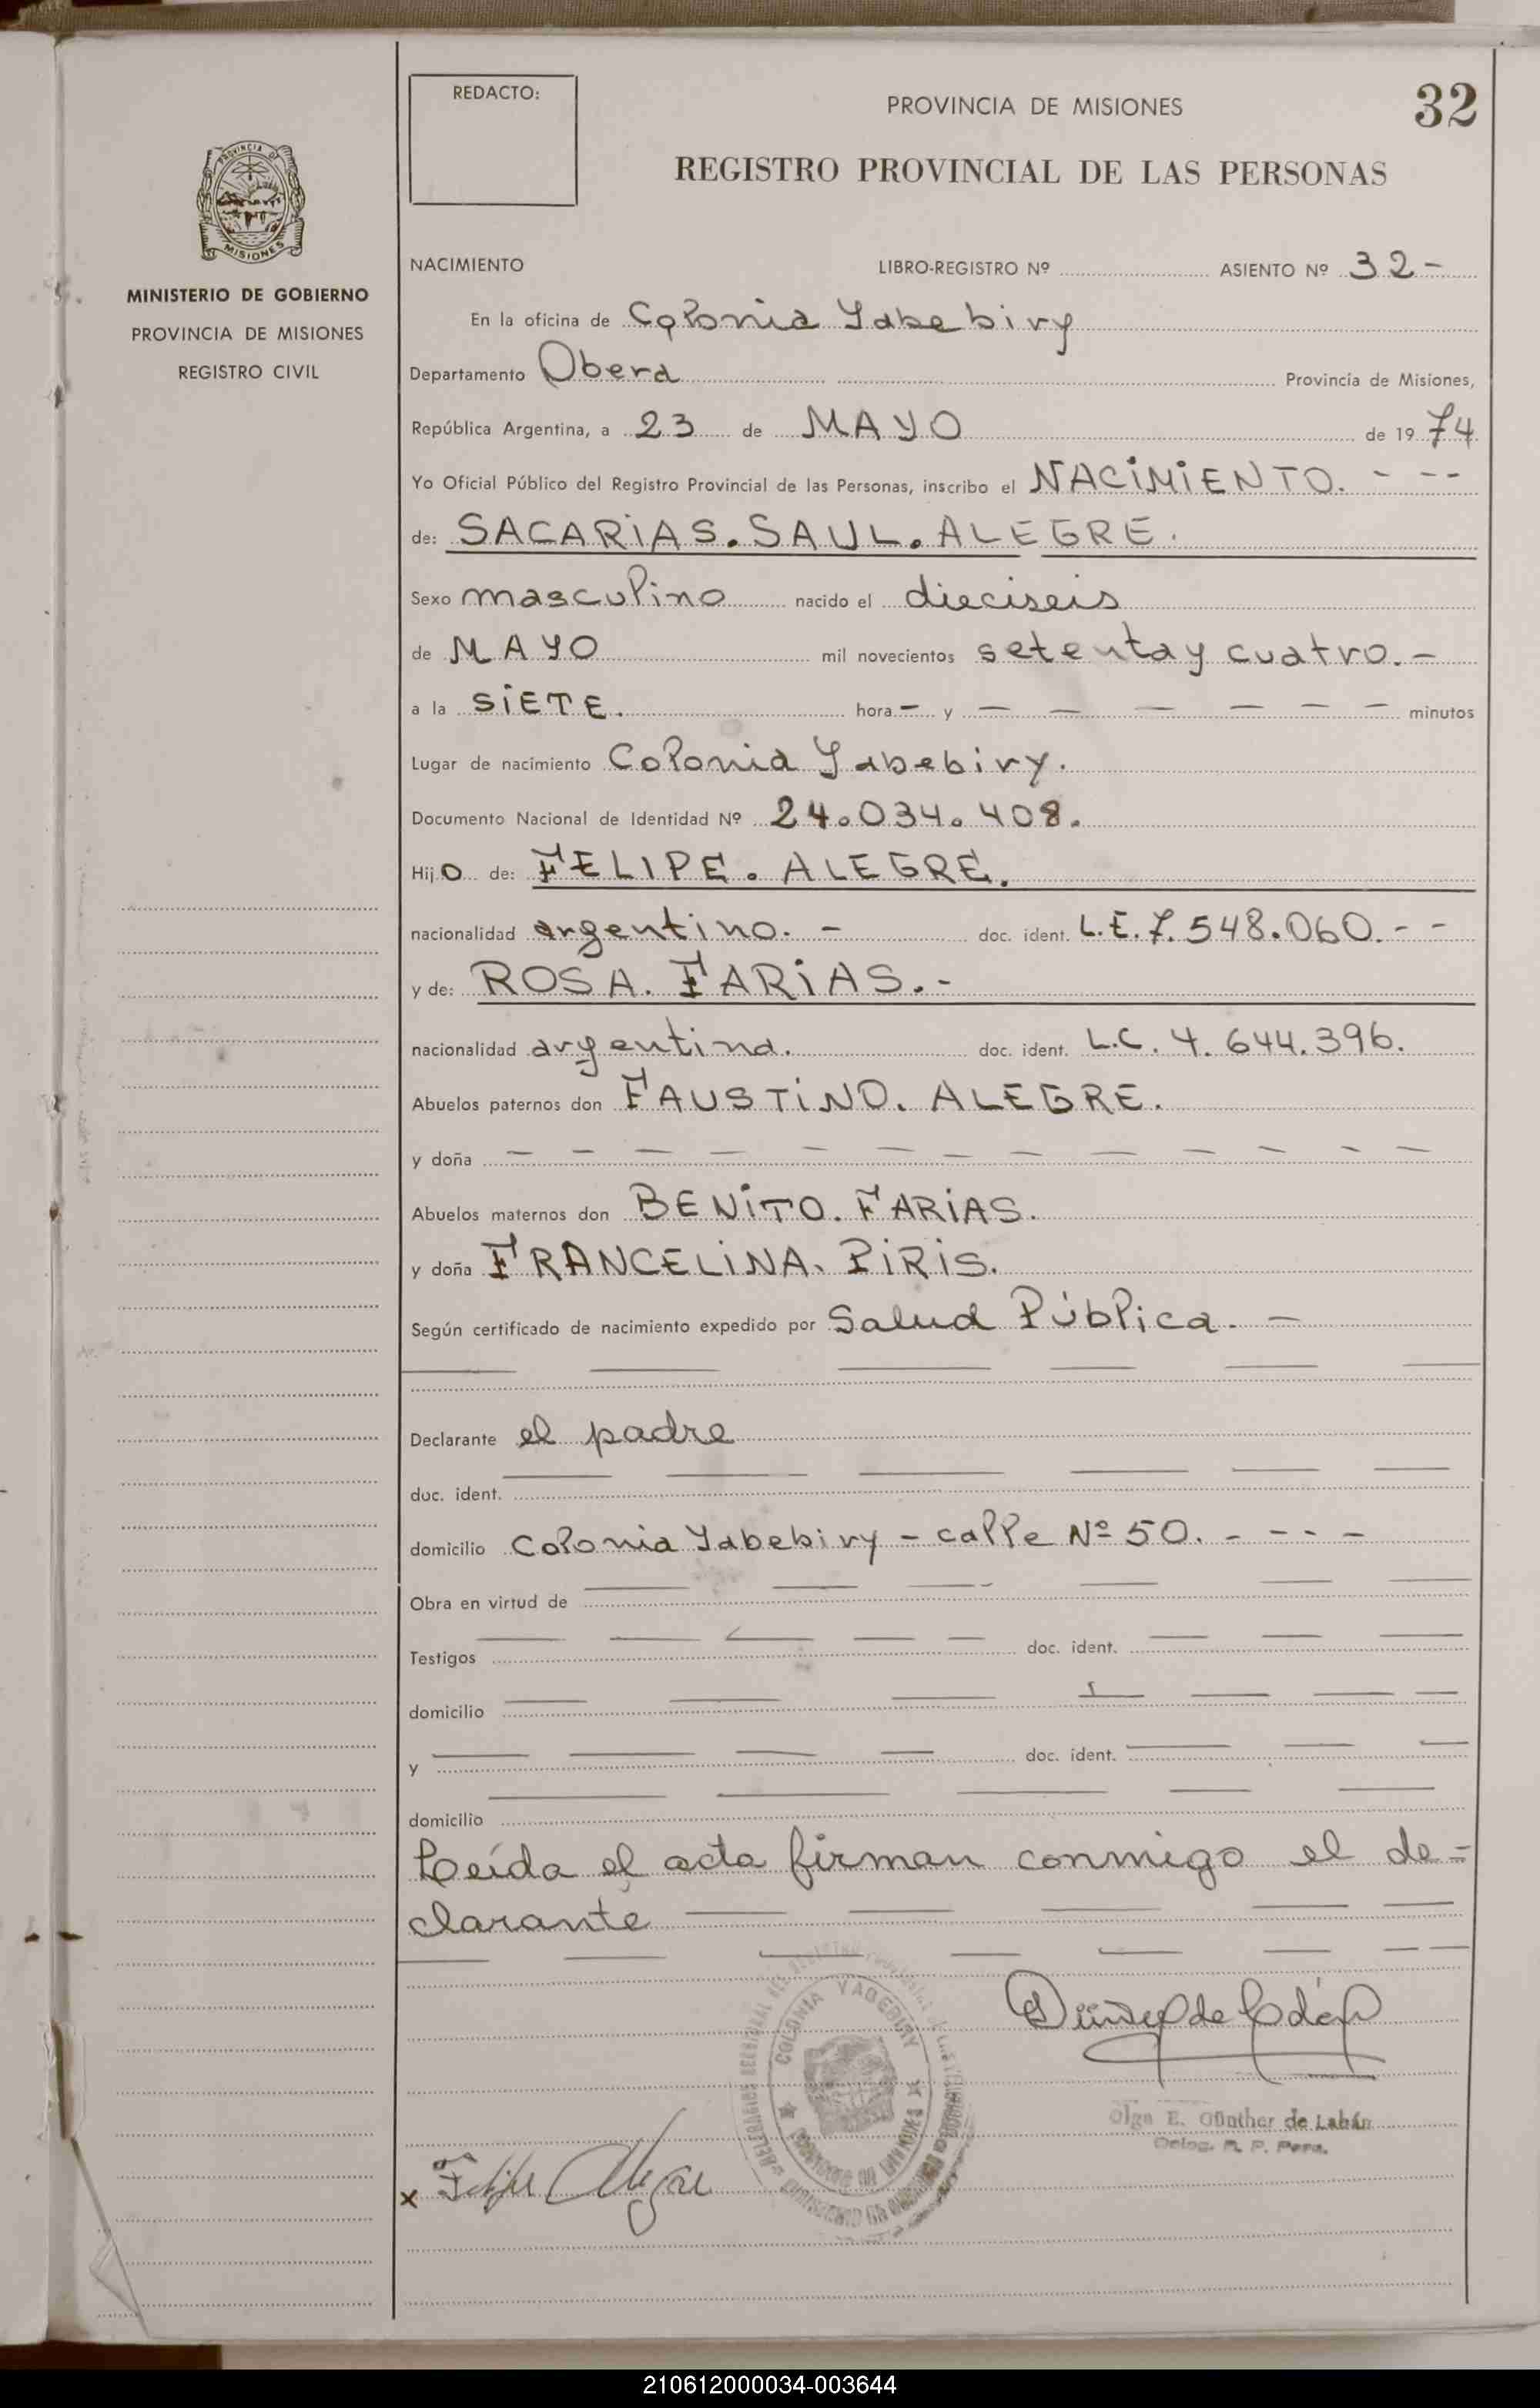 REDACTO:
PROVINCIA DE MISIONES
32
REGISTRO PROVINCIAL DE LAS PERSONAS
PROVINCIA DE
MISIONES
MINISTERIO DE GOBIERNO
PROVINCIA DE MISIONES
REGISTRO CIVIL
NACIMIENTO LIBRO-REGISTRO Nº ASIENTO Nº 32-
En la oficina de Colonia Yabebiry
Departamento Obera Provincia de Misiones,
República Argentina, a 23 de MAYO de 1974
Yo Oficial Público del Registro Provincial de las Personas, inscribo el NACIMIENTO. - - -
de: SACARIAS. SAUL. ALEGRE.
Sexo masculino nacido el dieciseis
de MAYO mil novecientos setenta y cuatro. -
a la SIETE. hora - y - - - - - - - minutos
Lugar de nacimiento Colonia Yabebiry.
Documento Nacional de Identidad Nº 24.034.408.
Hijo de: FELIPE. ALEGRE.
nacionalidad argentino. - doc. ident. L.E. 7.548.060. - -
y de: ROSA. FARIAS. -
nacionalidad argentina. doc. ident. L.C. 4.644.396.
Abuelos paternos don FAUSTINO. ALEGRE.
y doña - - - - - - - - - - - - - -
Abuelos maternos don BENITO. FARIAS.
y doña FRANCELINA. PIRIS.
Según certificado de nacimiento expedido por Salud Pública. -
Declarante el padre
doc. ident.
domicilio Colonia Yabebiry - calle Nº 50. - - - -
Obra en virtud de
Testigos doc. ident.
domicilio
y doc. ident.
domicilio
Leída el acta firman conmigo el de=
clarante
COLONIA YABEBIRY
Olga E. Günther de Labán
Deleg. R. P. Pers.
x Felipe Alegre
210612000034-003644